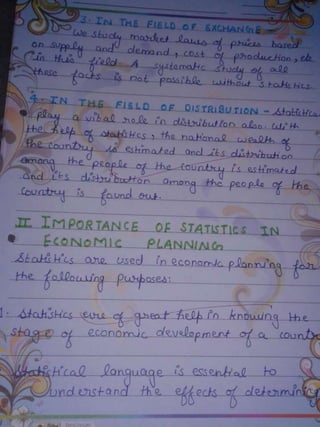 3. IN THE FIELD OF EXCHANGE
We study market laws of prices based
on supply and demand, cost of production, etc
in this field. A systematic study of all
these facts is not possible without statistics
4. IN THE FIELD OF DISTRIBUTION - Statistics
play a vital role in distribution also. With
the help of statistics, the national wealth of
the country is estimated and its distribution
among the people of the country is estimated
and its distribution among the people of the
country is found out.
II IMPORTANCE OF STATISTICS IN
ECONOMIC PLANNING
Statistics are used in economic planning for
the following purposes:
1. Statistics are of great help in knowing the
stage of economic development of a countr
Statistical language is essential to
understand the effects of determining